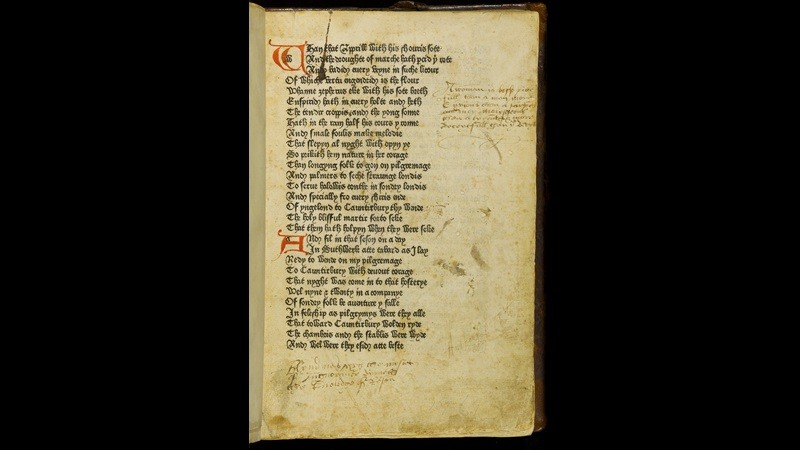 Whan that Apprill with his shouris sote
And the droughte of marche hath percid þe rote
And badid euery veyne in suche licour
Of whiche vertu engendrid is the flour
Whanne zephyrus eke with his sote breth
Enspirid hath in euery holte and heth
The tendir croppis, and the yong sonne
Hath in the ram half his cours y ronne
And smale foulis make melodie
That slepyn al nyght with opyn ye
So prikith hem nature in her corage
Than longyng folk to gon on pilgremage
And palmers to seche straunge londis
To serue halowis couthe in sondry londis
And specially fro euery shiris ende
Of yngelond to Cauntirbury thy wende
The holy blisful martir forto seke
That them hath holpyn when they were seke
And fil in that seson on a day
In Suthwerk atte tabard as I lay
Redy to wende on my pilgremage
To Cauntirbury with deuout corage
That nyght was come in to that hosterye
Wel nyne & twenty in a companye
Of sondry folk be auenture y falle
In feleship as pilgrymys were they alle
That toward Cauntirbury wolden ryde
The chambris and the stablis were wyde
And wel were they esid atte beste